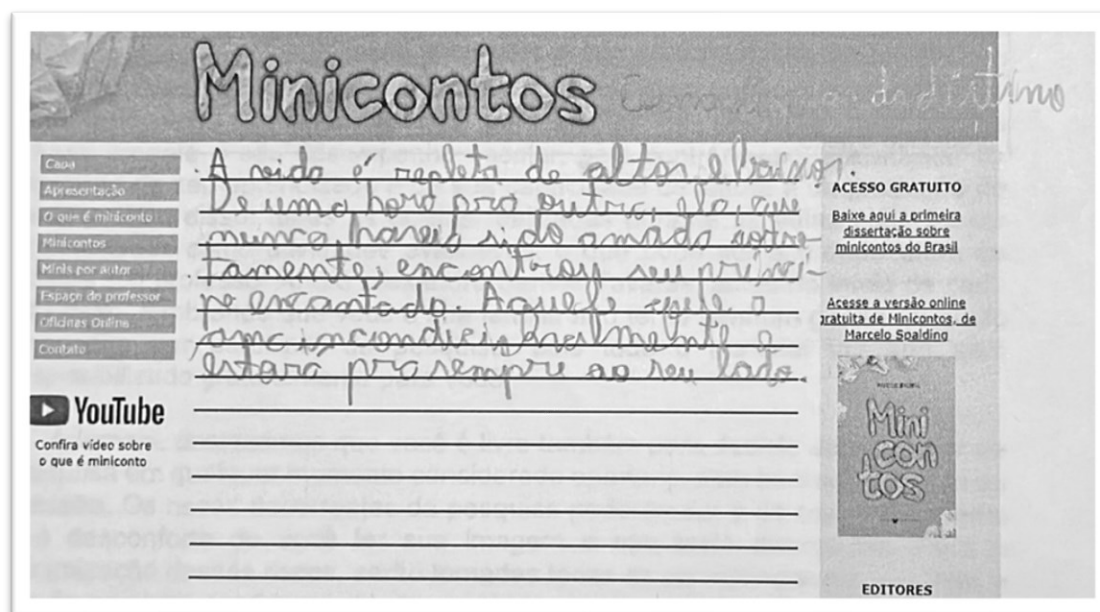 Minicontos
Coincidências do destino
Capa
Apresentação
O que é miniconto
Minicontos
Minis por autor
Espaço do professor
Oficinas Online
Contato
YouTube
Confira vídeo sobre
o que é miniconto
A vida é repleta de altos e baixos.
De uma hora pra outra, ela, que
nunca havia sido amada
tamente, encontrou seu prínci-
pe encantado. Aquele que a
ama incondicionalmente e
estará pra sempre ao seu lado.
ACESSO GRATUITO
Baixe aqui a primeira
dissertação sobre
minicontos do Brasil
Acesse a versão online
gratuita de Minicontos, de
Marcelo Spalding
Mini
con
tos
EDITORES